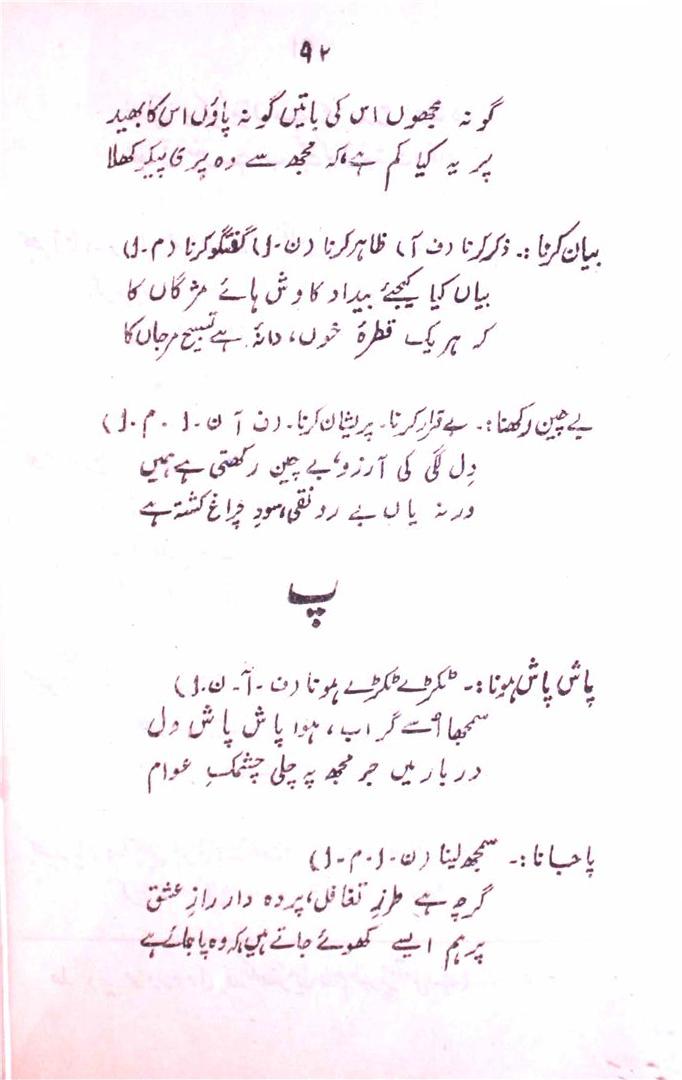 ۹۲
گو نہ سمجھوں اس کی باتیں گو نہ پاؤں اس کا بھید
پر یہ کیا کم ہے، کہ مجھ سے وہ پری پیکر کھلا
بیان کرنا :۔ ذکر کرنا (ف آ) ظاہر کرنا (ن۔ ل) گفتگو کرنا (م۔ ل)
بیاں کیا کیجئے بیداد کاوش ہائے مژگاں کا
کہ ہر یک قطرۂ خوں، دانہ ہے تسبیح مرجاں کا
بے چین رکھنا :۔ بے قرار کرنا۔ پریشان کرنا۔ (ف آ ن۔ ل۔ م۔ ل)
دِل لگی کی آرزو، بے چین رکھتی ہے ہمیں
ورنہ یاں بے رونقی، سودِ چراغ کشتہ ہے
پ
پاش پاش ہونا :۔ ٹکڑے ٹکڑے ہونا (ف۔ آ۔ ن۔ ل)
سمجھا اُسے گراب، ہوا پاش پاش دل
دربار میں جو مجھ پہ چلی چشمکِ عوام
پاجانا :۔ سمجھ لینا (ن۔ ل۔ م۔ ل)
گرچہ ہے طرزِ تغافل، پردہ دار رازِ عشق
پر ہم ایسے کھوئے جاتے ہیں کہ وہ پا جائے ہے